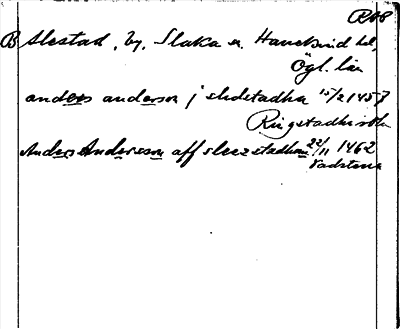 B Slestad, by, Slaka sn Hanekind hd,
Ögl. län
anders anderson j slestadha 15/2 1457
Ringstadhe
Anders Andersson aff sleezstadhom 22/11 1462
Vadstena